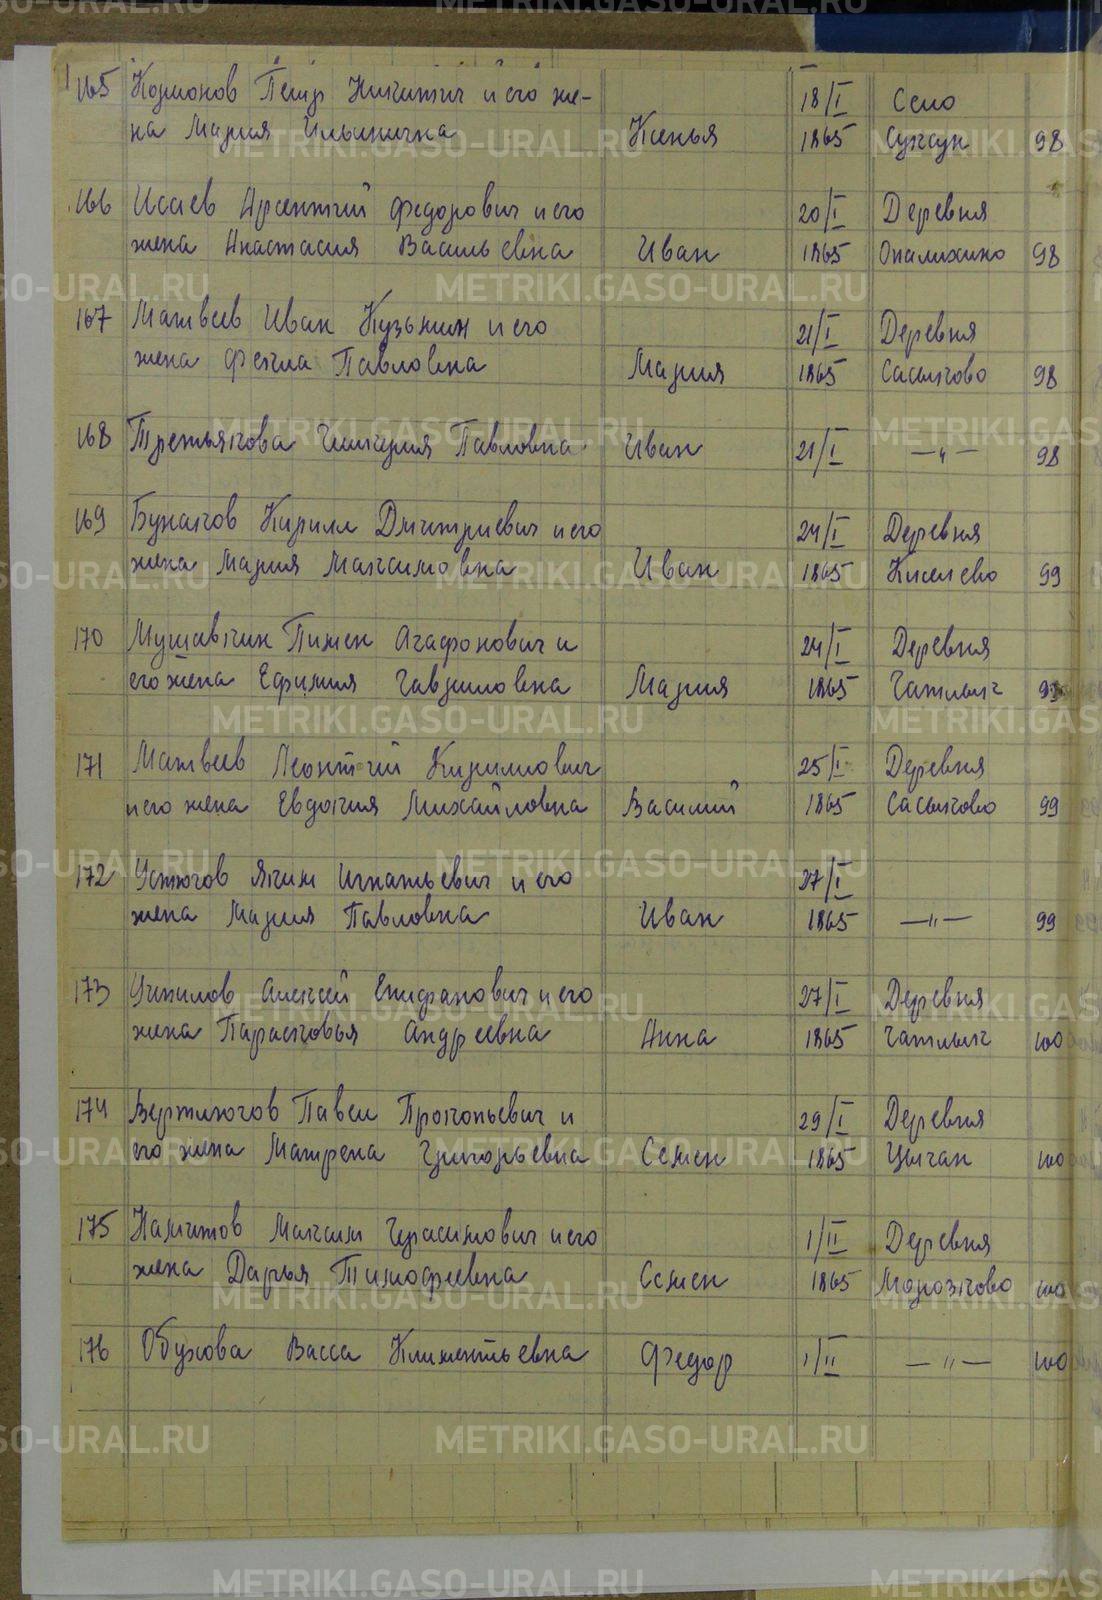 165 Кормонов Петр Никитич и его же- 18/I Село
на Мария Ильинична Ксенья 1865 Суксун 98
166 Исаев Арсентий Федорович и его 20/I Деревня
жена Анастасия Васильевна Иван 1865 Опалихино 98
167 Матвеев Иван Кузьмин и его 21/I Деревня
жена Фекла Павловна Мария 1865 Сасыково 98
168 Третьякова Гликерия Павловна Иван 21/I —"— 98
169 Бунаков Кирилл Дмитриевич и его 24/I Деревня
жена Мария Максимовна Иван 1865 Киселево 99
170 Мушавкин Пимен Агафонович и 24/I Деревня
его жена Ефимия Гавриловна Мария 1865 Катлык 99
171 Матвеев Леонтий Кирилович 25/I Деревня
и его жена Евдокия Михайловна Василий 1865 Сасыково 99
172 Устюгов Яким Игнатьевич и его 27/I
жена Мария Павловна Иван 1865 —"— 99
173 Алексей Епифанович и его 27/I Деревня
жена Парасковья Андреевна Анна 1865 Катлык 100
174 Вертлюгов Павел Прокопьевич и 29/I Деревня
его жена Матрена Григорьевна Семен 1865 Цыган 100
175 Максим Герасимович и его 1/II Деревня
жена Дарья Тимофеевна Семен 1865 Морозково 100
176 Обухова Васса Климентьевна Федор 1/II —"— 100
METRIKI.GASO-URAL.RU